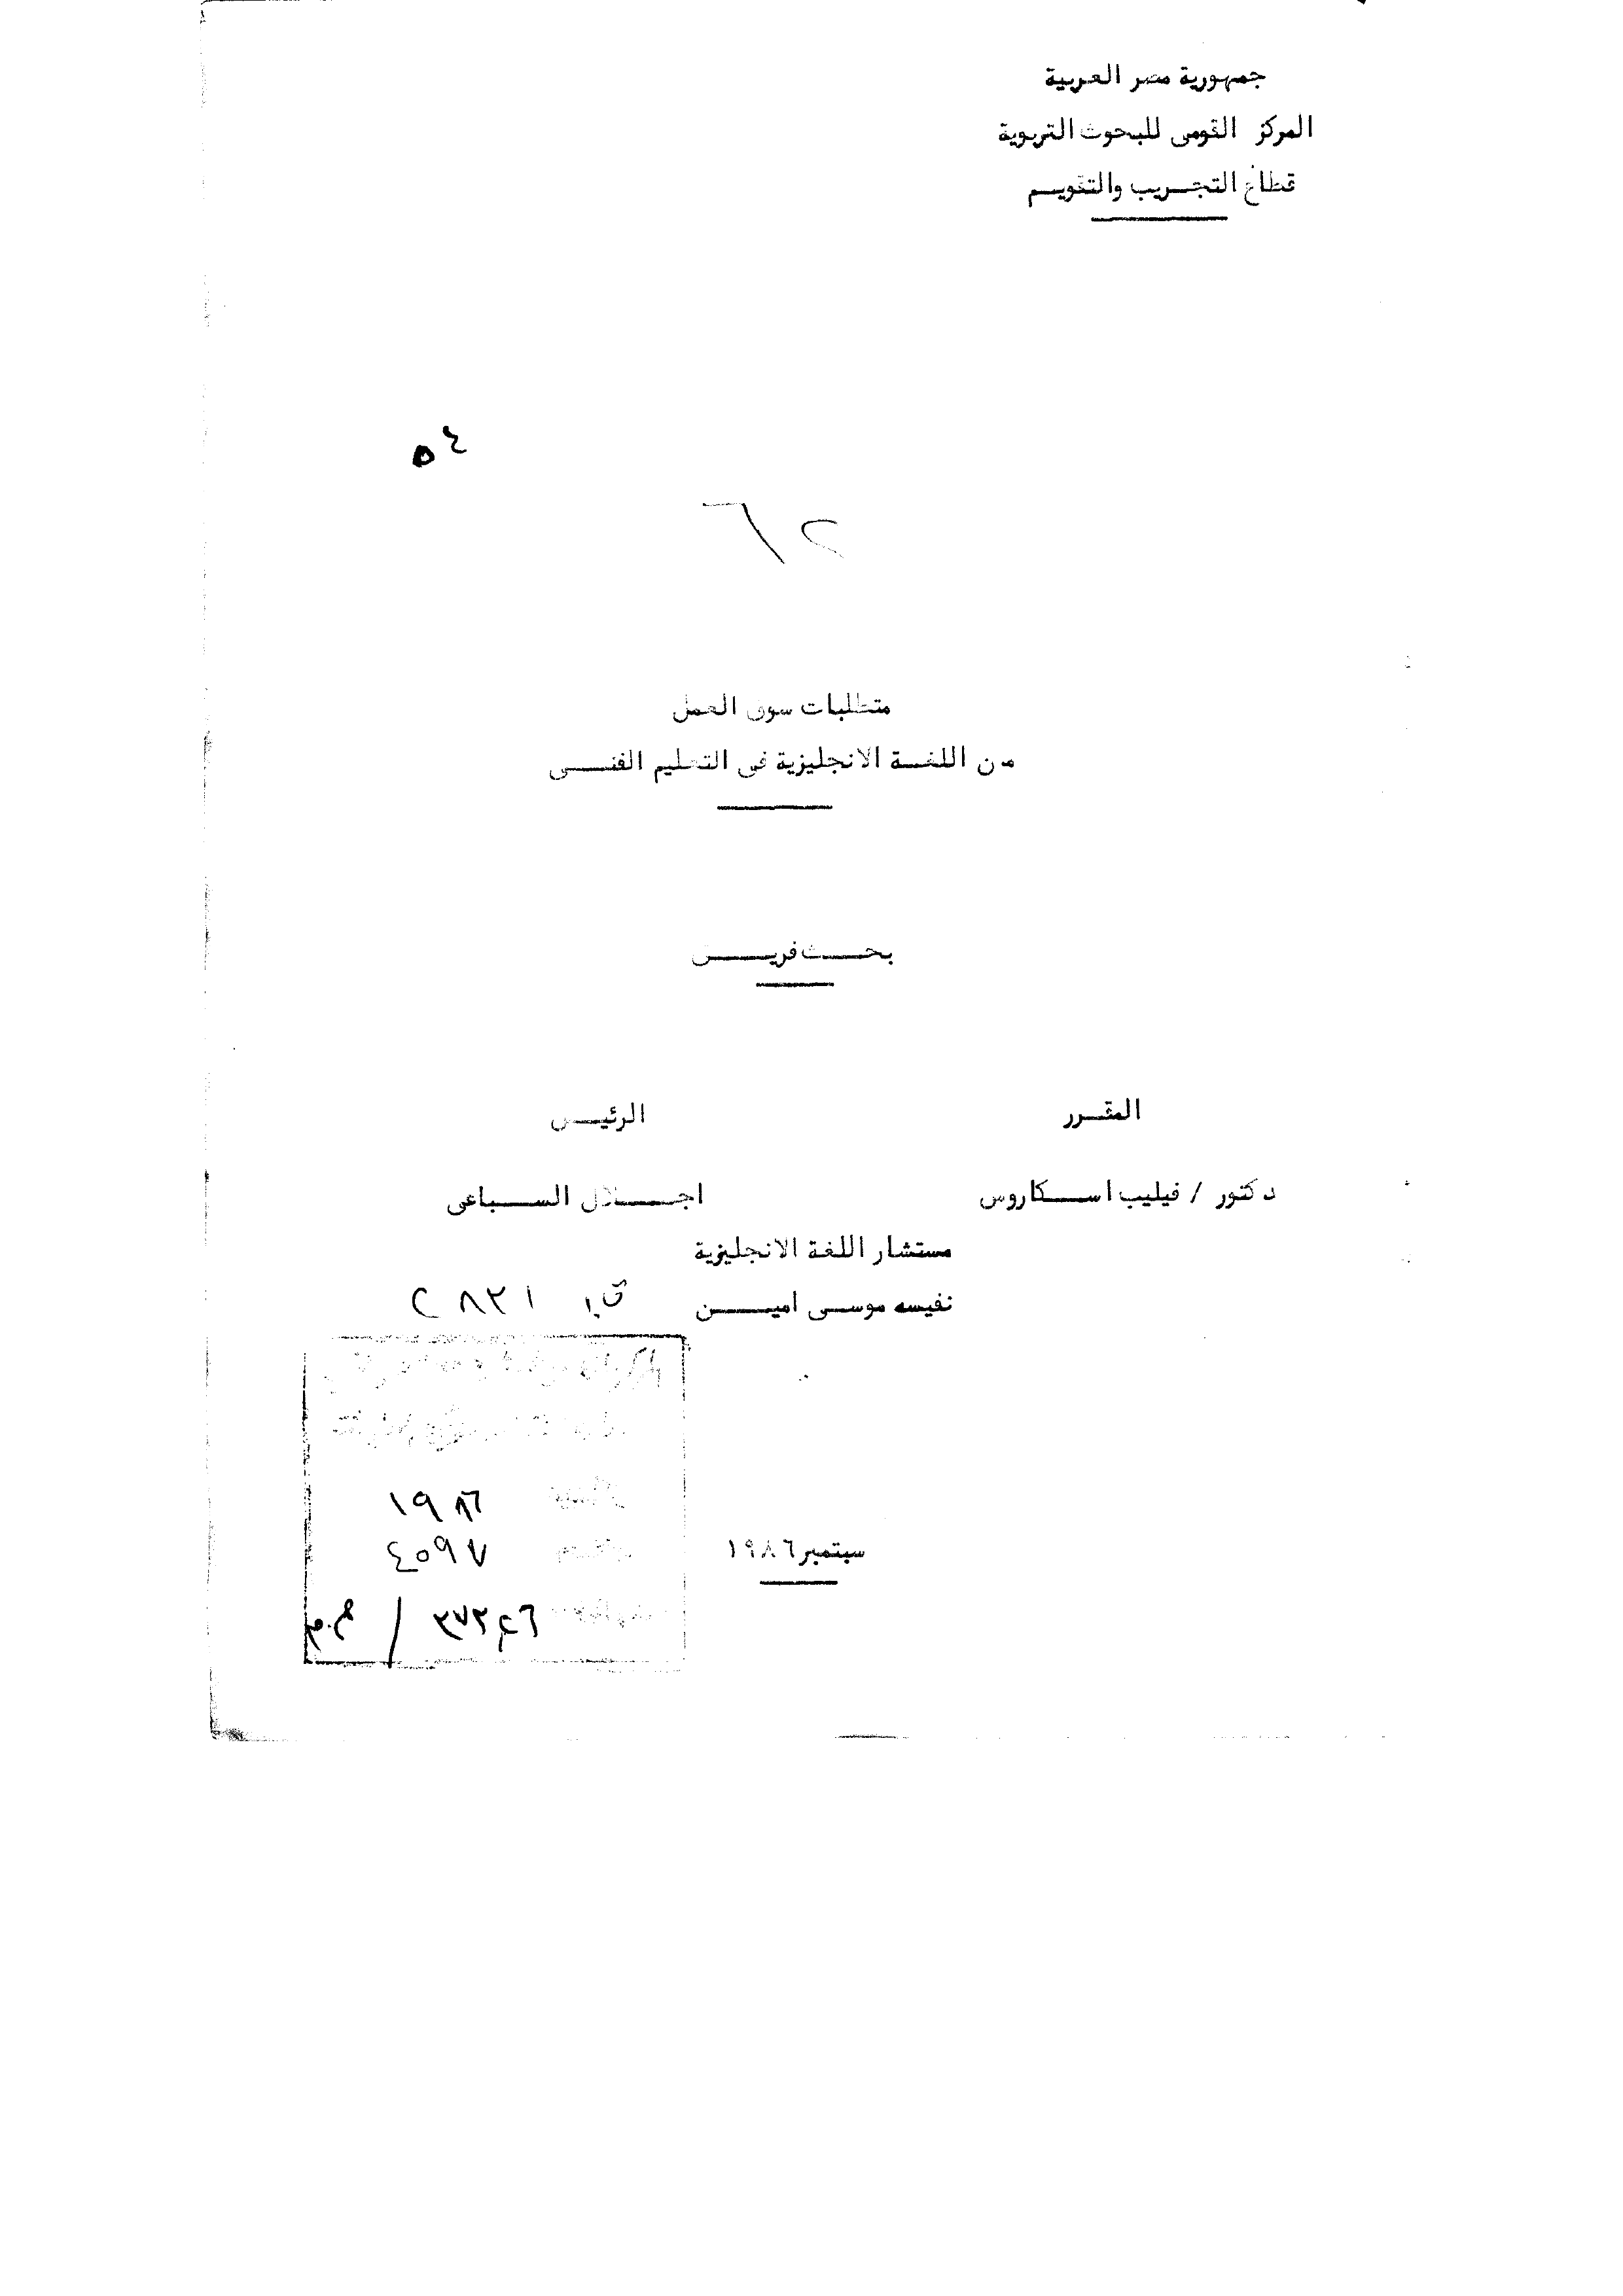 جمهورية مصر العربية
المركز القومى للبحوث التربوية
قطاع التجريب والتقويم
٥٤
متطلبات سوق العمل
من اللغة الانجليزية فى التعليم الفنى
بحث فريق
المقرر الرئيس
دكتور / فيليب اسكاروس اجلال السباعى
مستشار اللغة الانجليزية
نفيسه موسى امين
١٩٨٦
سبتمبر ١٩٨٦
٤٥٩٧